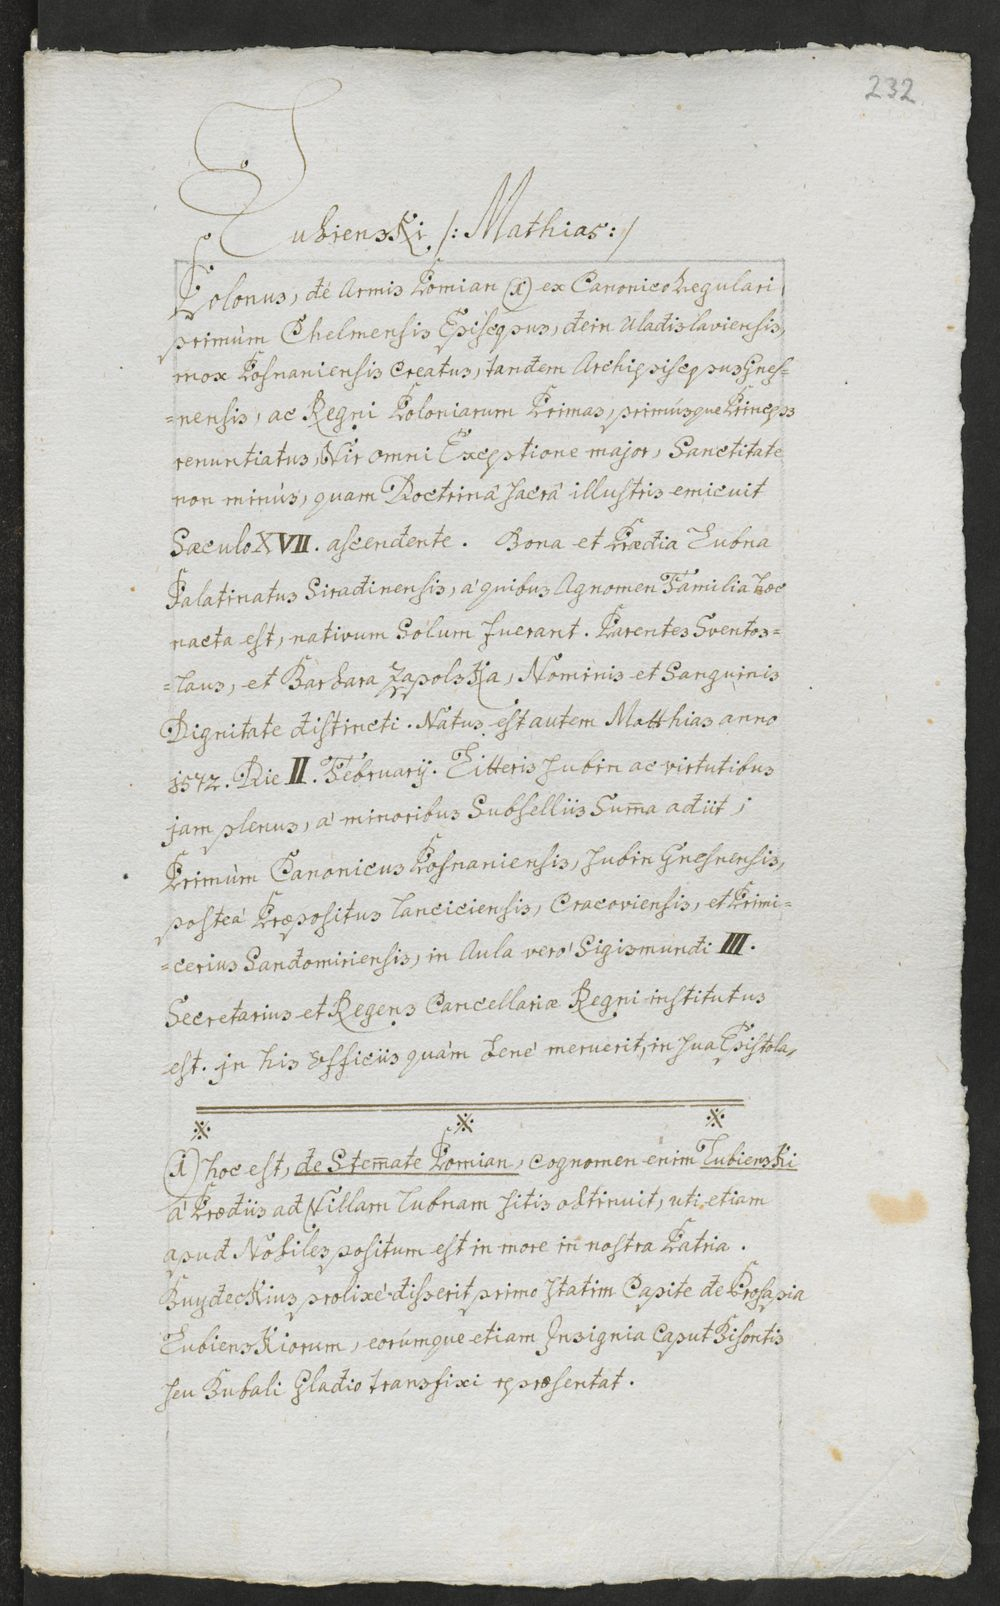 232
Lubienski /: Mathias :/
Polonus, de Armis Pomian (x) ex Canonico Regulari
primùm Chelmensis Episcopus, dein Uladislaviensis,
mox Posnaniensis Creatus, tandem Archiepiscopus Gnes=
=nensis, ac Regni Poloniarum Primas, primúsque Princeps
renuntiatus, Vir omni Exceptione major, Sanctitate
non minùs, quam Doctrinâ Sacrâ illustris emicuit
Sæculo XVII. ascendente. Bona et Prædia Lubna
Palatinatus Siradinensis, à quibus Agnomen Familia hæc
nacta est, nativum Solum fuerant. Parentes Sventos=
=laus, et Barbara Zapolska, Nominis et Sanguinis
Dignitate distincti. Natus est autem Matthias anno
1572. Die II. Februarij. Litteris Subin ac virtutibus
jam plenus, à minoribus Subselliis Suma adiit;
Primùm Canonicus Posnaniensis, Subin Gnesnensis,
posteà Præpositus Lanciciensis, Cracoviensis, et Primi=
=cerius Sandomiriensis, in Aula verò Sigismundi III.
Secretarius et Regens Cancellariæ Regni institutus
est. in his officiis quàm benè meruerit, in sua Epistola,
(x) hoc est, de Stemate Pomian, cognomen enim Lubienski
à Prædiis ad Villam Lubnam sitis obtinuit, uti etiam
apud Nobiles positum est in more in nostra Patria.
Buydeckius prolixè disserit primo Statim Capite de Prosapia
Lubienskiorum, eorúmque etiam Insignia Caput Bisontis
seu Bubali Gladio transfixi repræsentat.